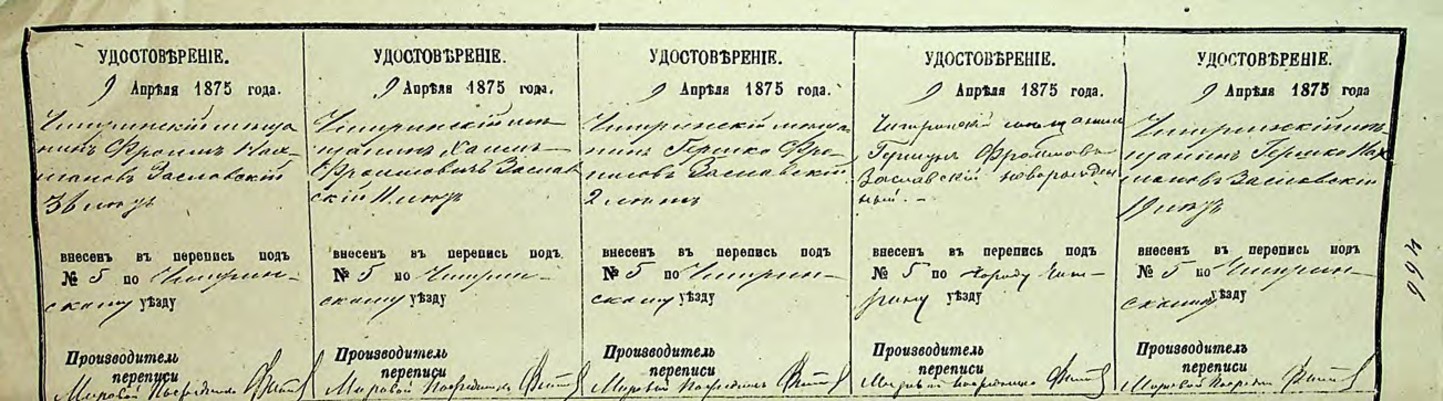 УДОСТОВѢРЕНІЕ.
9 Апрѣля 1875 года.
Чигринскій мѣща
нинъ Фроимъ Нах-
мановъ Заславскій
36 лѣтъ
внесенъ въ перепись подъ
№ 5 по Чигрин-
скому уѣзду
Производитель
переписи
Мировой Посредникъ
УДОСТОВѢРЕНІЕ.
9 Апрѣля 1875 года.
Чигринскій мѣ-
щанинъ Хаимъ
Фроимовичъ Заслав
скій 11 лѣтъ
внесенъ въ перепись подъ
№ 5 по Чигрин-
скому уѣзду
Производитель
переписи
Мировой Посредникъ
УДОСТОВѢРЕНІЕ.
9 Апрѣля 1875 года.
Чигринскій мѣща-
нинъ Гершко Фро-
имовъ Заславскій
2 лѣтъ
внесенъ въ перепись подъ
№ 5 по Чигрин-
скому уѣзду
Производитель
переписи
Мировой Посредникъ
УДОСТОВѢРЕНІЕ.
9 Апрѣля 1875 года.
Чигринскій мѣщанинъ
Фроимовъ
Заславскій новорожден
ный. -
внесенъ въ перепись подъ
№ 5 по городу Чиг-
рину уѣзду
Производитель
переписи
Мировой Посредникъ
УДОСТОВѢРЕНІЕ.
9 Апрѣля 1875 года
Чигринскій мѣ-
щанинъ Гершко Нах
мановъ Заславскій
19 лѣтъ
внесенъ въ перепись подъ
№ 5 по Чигрин-
скому уѣзду
Производитель
переписи
Мировой Посредникъ
466